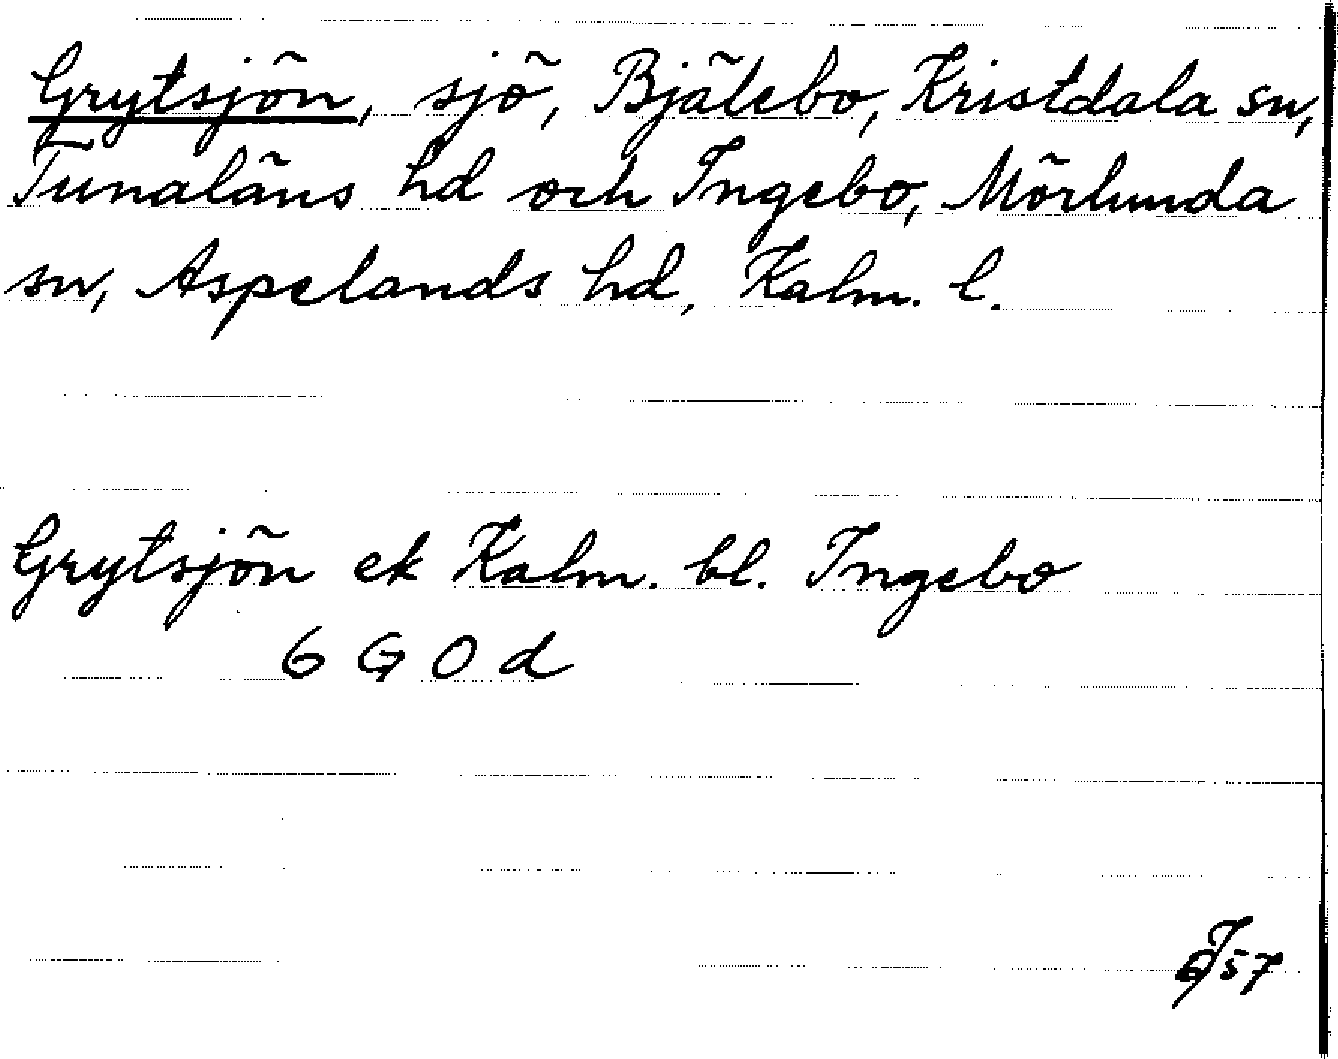 Grytsjön, sjö, Bjälebo, Kristdala sn,
Tunaläns hd och Ingebo, Mörlunda
sn, Aspelands hd, Kalm. l.
Grytsjön ek Kalm. bl. Ingebo
6 G O d